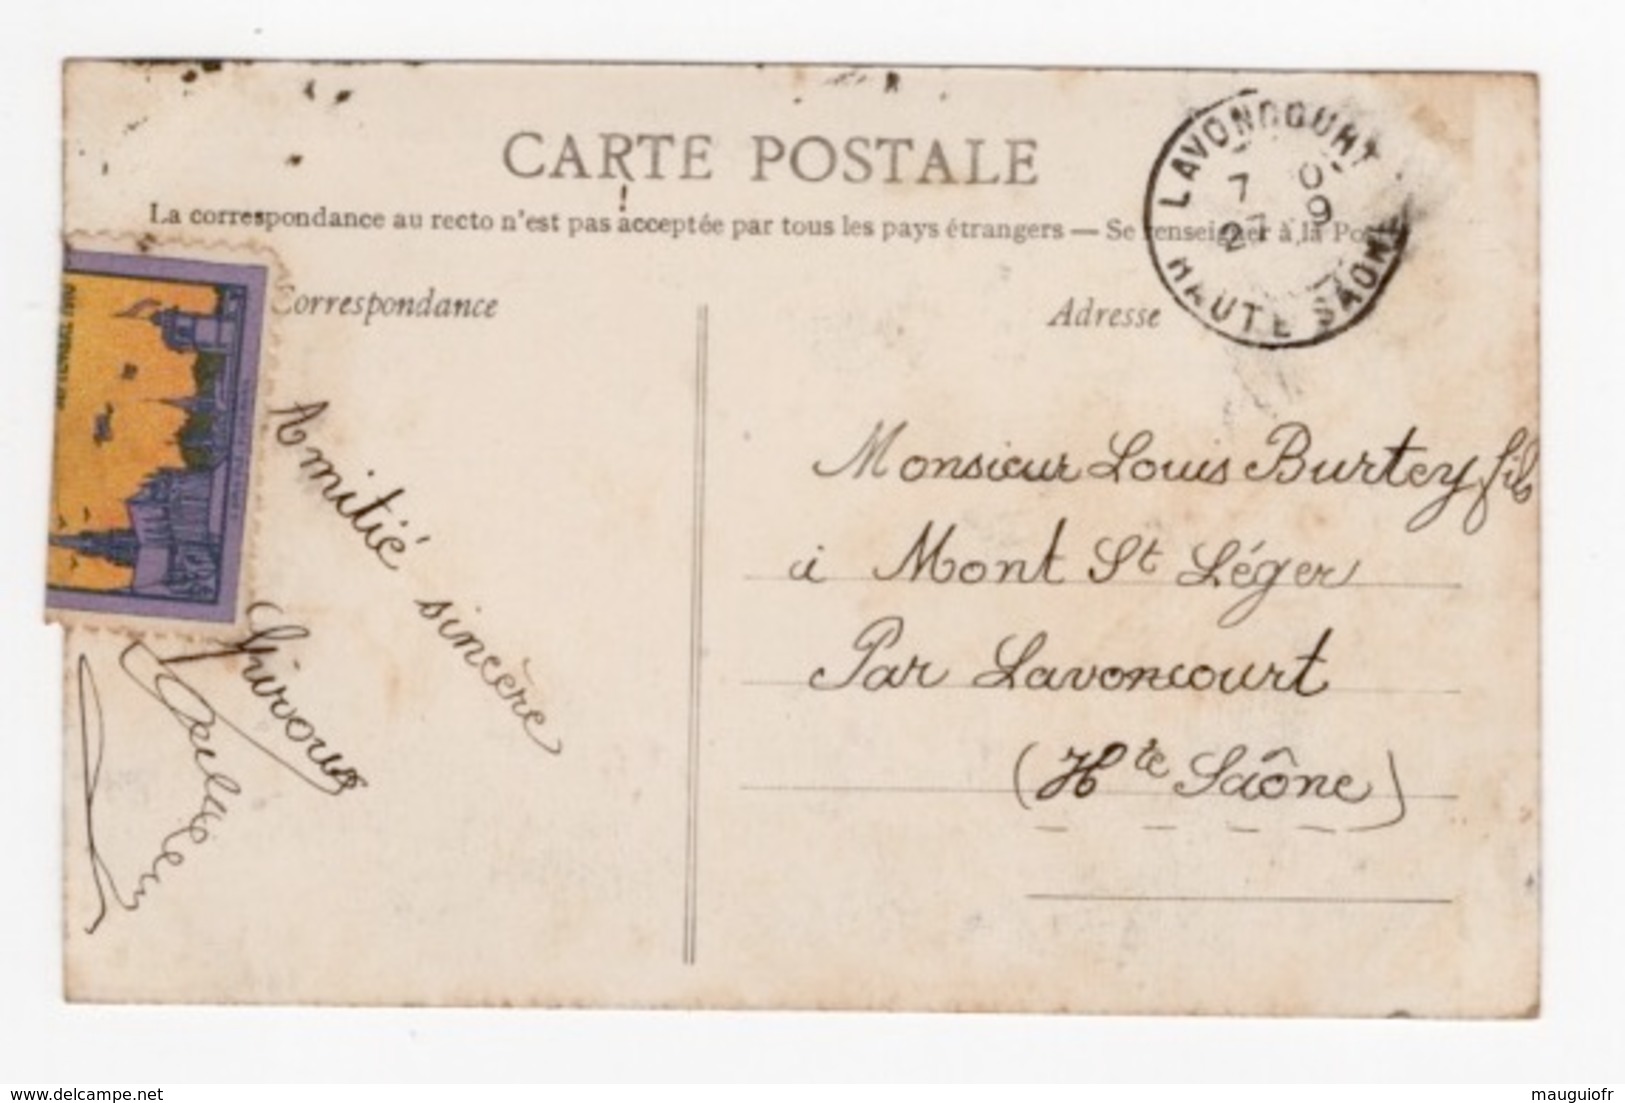 CARTE POSTALE
La correspondance au recto n'est pas acceptée par tous les pays étrangers — Se renseigner à la Poste
Correspondance
Adresse
LAVONCOURT
7 09
27
HAUTE SAONE
Amitié sincère
Monsieur Louis Burtey fils
à Mont St Léger
Par Lavoncourt
(Hte Saône)
mauguiofr